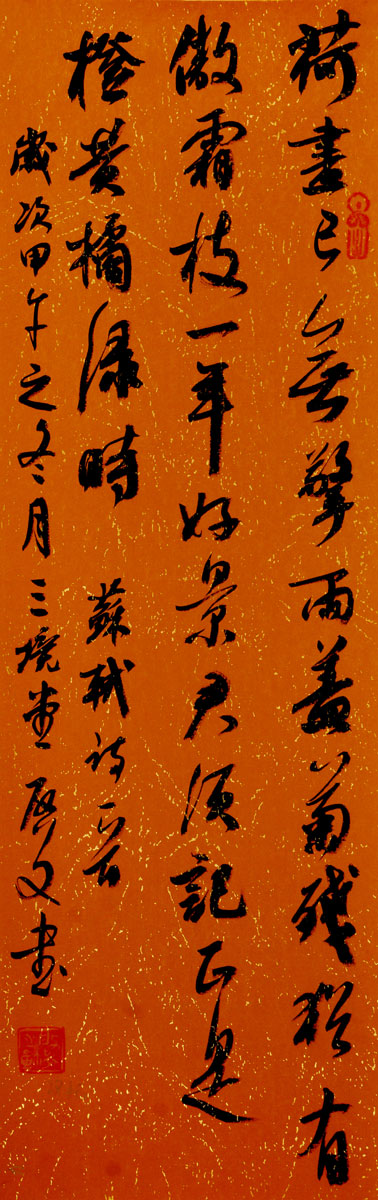 荷盡已無擎雨蓋菊殘猶有
傲霜枝一年好景君須記正是
橙黃橘綠時 蘇軾詩一首
歲次甲午之冬月三境堂文書